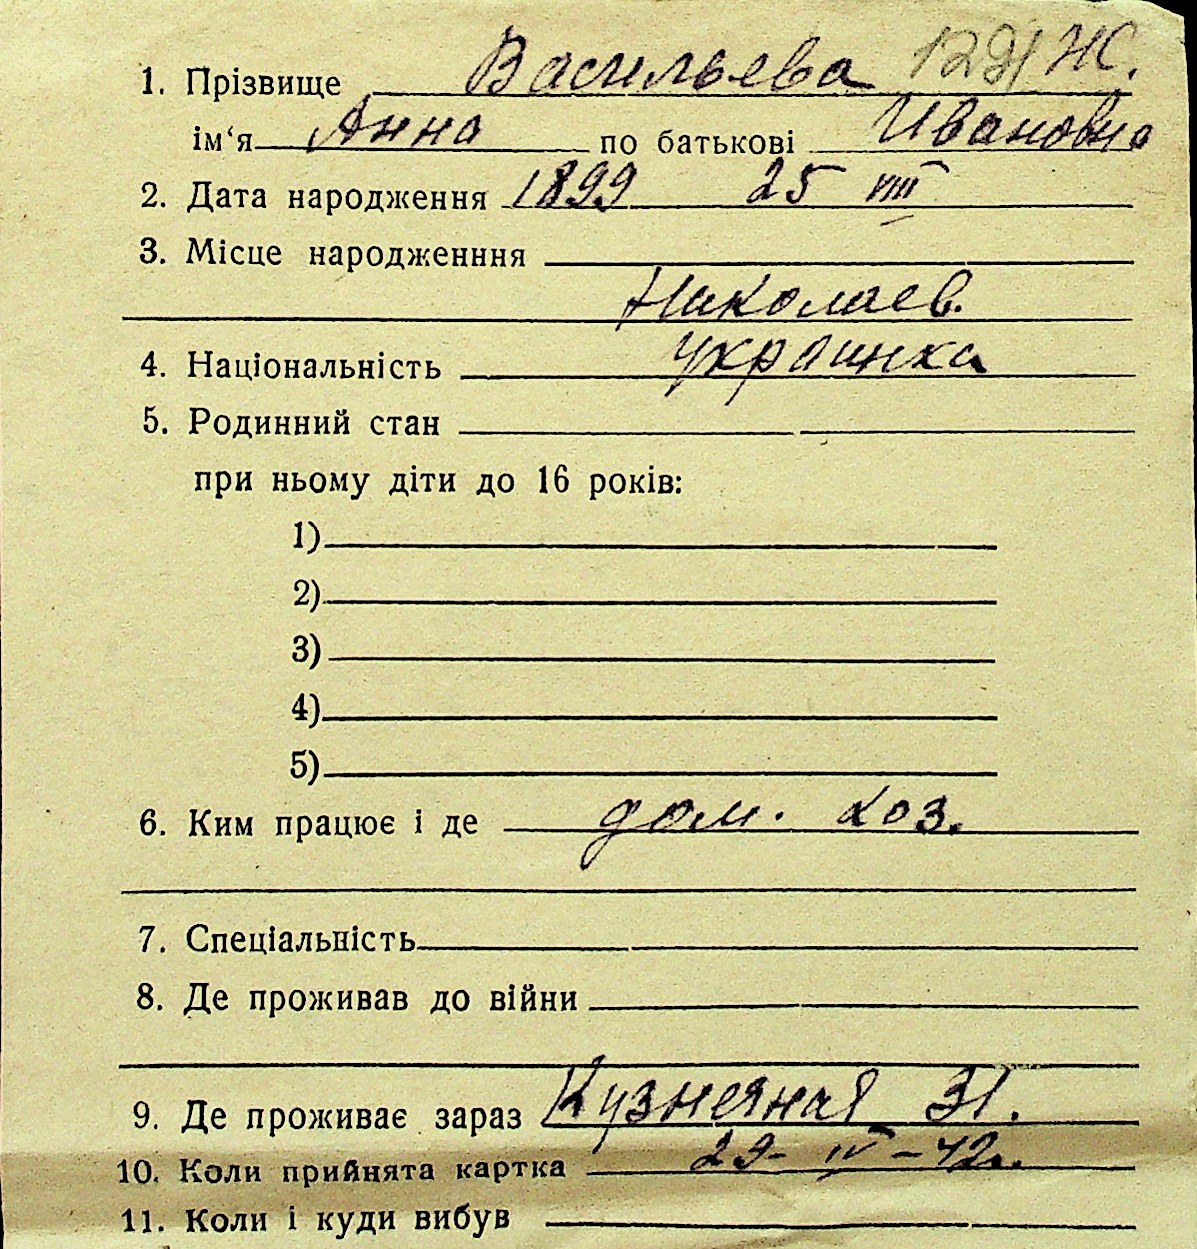 1. Прізвище Васильева 1291 Ж.
ім‘я Анна по батькові Ивановна
2. Дата народження 1899 25 VIII
3. Місце народженння
Николаев.
4. Національність украинка
5. Родинний стан
при ньому діти до 16 років:
1)
2)
3)
4)
5)
6. Ким працює і де дом. хоз.
7. Спеціальність
8. Де проживав до війни
9. Де проживає зараз Кузнечная 31.
10. Коли прийнята картка 29- IV - 42г.
11. Коли і куди вибув